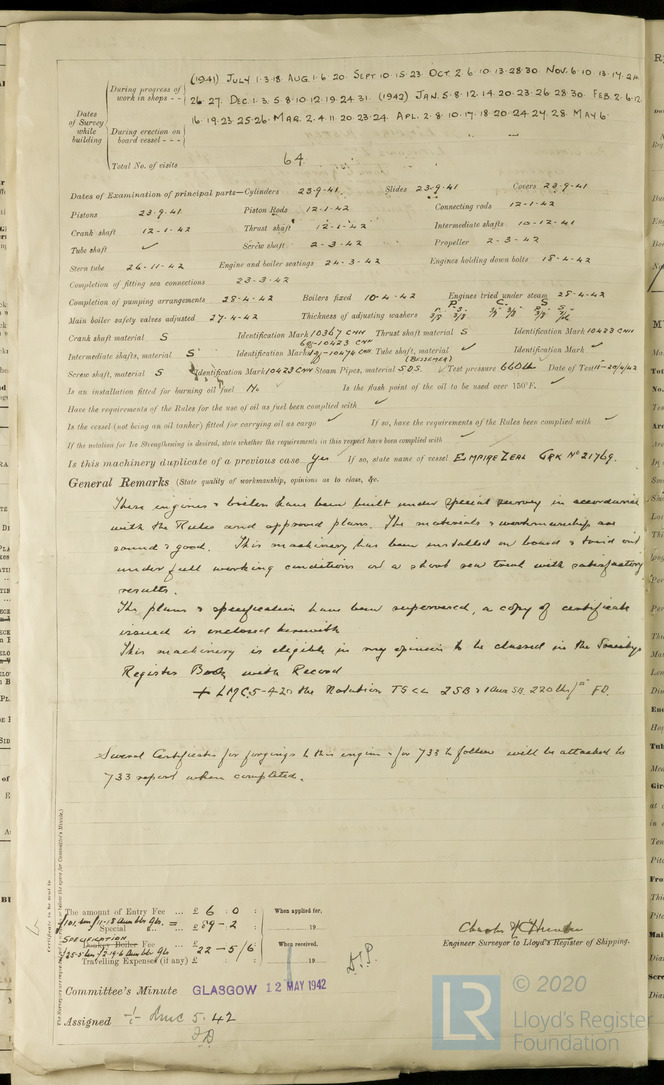 (1941) JULY 1.3.18. AUG.1.6.20. SEPT 10.15.23. OCT. 2.6.10.13.28.30. NOV. 6.10.13.14.24
During progress of work in shops - -
26.27. DEC.1.3.5.8.10.12.19.24.31. (1942) JAN.5.8.12.14.20.23.26.28.30. FEB.2.6.12
Dates of Survey while building
16.19.23.25.26. MAR.2.4.11.20.23.24. APL.2.8.10.17.18.20.24.27.28. MAY 6.
During erection on board vessel - - -
Total No. of visits 64.
Dates of Examination of principal parts—Cylinders 23.9.41. Slides 23.9.41. Covers 23.9.41.
Pistons 23.9.41. Piston Rods 12.1.42 Connecting rods 12.1.42
Crank shaft 12.1.42 Thrust shaft 12.1.42 Intermediate shafts 10.12.41
Tube shaft ✓ Screw shaft 2.3.42 Propeller 2.3.42
Stern tube 26.11.42 Engine and boiler seatings 24.3.42 Engines holding down bolts 18.4.42
Completion of fitting sea connections 23.3.42
Completion of pumping arrangements 28.4.42 Boilers fixed 10.4.42 Engines tried under steam 28.4.42
Main boiler safety valves adjusted 27.4.42 Thickness of adjusting washers P C S
Crank shaft material S Identification Mark 10367 CNH Thrust shaft material S Identification Mark 10423 CNH
Intermediate shafts, material S Identification Marks Tube shaft, material ✓ Identification Mark ✓
Screw shaft, material S Identification Mark 10423 CNH Steam Pipes, material S.D.S. Test pressure 660 lb Date of Test 11-20/4/42
Is an installation fitted for burning oil fuel No Is the flash point of the oil to be used over 150°F. ✓
Have the requirements of the Rules for the use of oil as fuel been complied with ✓
Is the vessel (not being an oil tanker) fitted for carrying oil as cargo ✓ If so, have the requirements of the Rules been complied with ✓
If the notation for Ice Strengthening is desired, state whether the requirements in this respect have been complied with ✓
Is this machinery duplicate of a previous case Yes If so, state name of vessel EMPIRE ZEAL GRK No 21769.
General Remarks (State quality of workmanship, opinions as to class, &c.
These engines & boilers have been built under special survey in accordance
with the Rules and approved plans. The materials & workmanship are
sound & good. This machinery has been installed on board & tried out
under full working conditions on a short sea trial with satisfactory
results.
The plans & specification have been supervised, a copy of certificate
issued is enclosed herewith
This machinery is eligible in my opinion to be classed in the Society's
Register Book with Record
+ LMC.5-42 & the Notation TS CL 2SB & 1 Aux SB. 220 lb/□" FD.
Several Certificates for forgings to this engine & for 733 to follow will be attached to
733 report when completed.
The amount of Entry Fee ... £ 6 : 0 : When applied for,
Special ... £ 89-2 19
SPECIFICATION
Donkey Boiler Fee ... £ 22-5/6 When received,
Travelling Expenses (if any) £ : : 19
Engineer Surveyor to Lloyd's Register of Shipping.
Committee's Minute GLASGOW 12 MAY 1942
Assigned + LMC 5.42
FD
© 2020
LR Lloyd's Register
Foundation